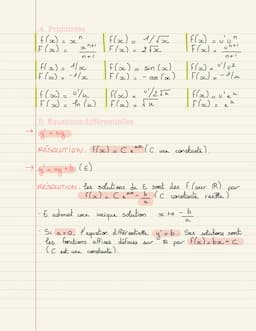 A. Primitives
f(x) = xⁿ
F(x) = xⁿ⁺¹/n+1
f(x) = 1/√x
F(x) = 2√x
f(x) = u'uⁿ
F(x) = uⁿ⁺¹/n+1
f(x) = 1/x²
F(x) = -1/x
f(x) = sin(x)
F(x) = -cos(x)
f(x) = u'/u²
F(x) = -1/u
f(x) = u'/u
F(x) = ln(u)
f(x) = u'/2√u
F(x) = √u
f(x) = u'eᵘ
F(x) = eᵘ
B. Equations différentielles
→ y' = ay
RÉSOLUTION: f(x) = C eᵃˣ (C une constante).
→ y' = ay + b (E)
RÉSOLUTION: Les solutions de E sont des f (sur ℝ) par
f(x) = C eᵃˣ - b/a (C constante, réelle)
· E admet une unique solution x ↦ -b/a
· Si a = 0, l'équation différentielle y' = b. Ses solutions sont
les fonctions affines définies sur ℝ par f(x) = bx + C
(C est une constante).